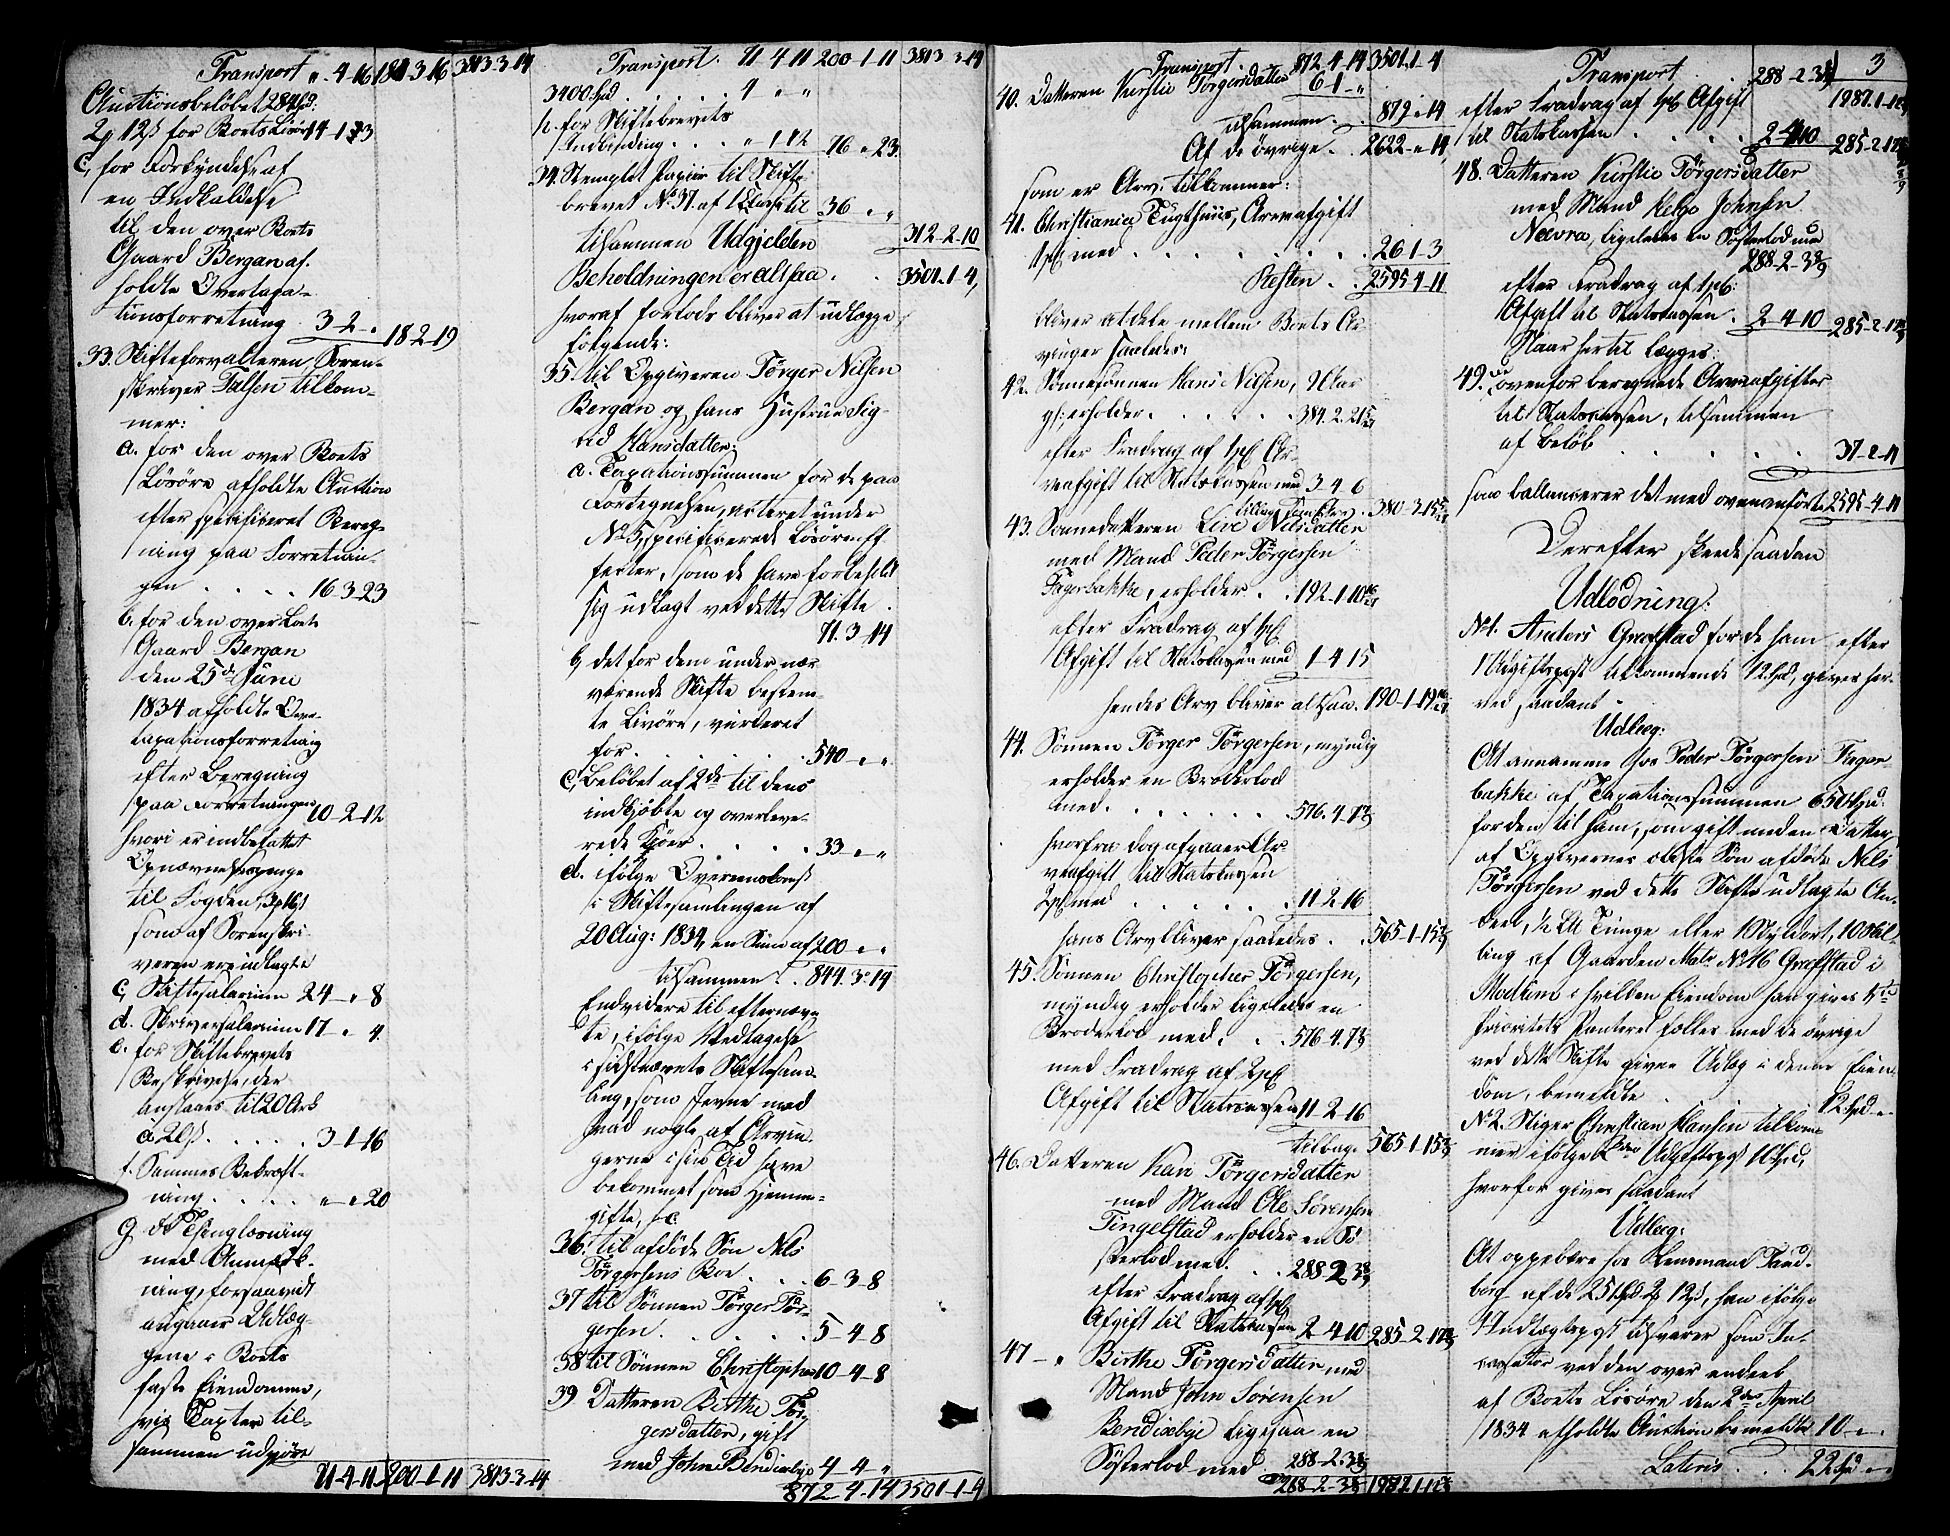 Transport " 4-16 181-3-16 3813-3-14
Auctionsbeløbet 284 Spd:
2 ₰ 12 ß for Boets Løsøre 14-1-23
c, for Forkyndelse af
en Indkaldelse
til den over Boets
Gaard Bergan af-
holdte Overtaxa-
tionsforretning 3-2-" 18-2-19
33. Skifteforvalteren, Soren-
skriver Falsen tilkom-
mer:
a. for den over Boets
Løsøre afholdte Auction
efter specificeret Bereg-
ning paa Forretnin-
gen . . . . . 16-3-23
b. for den over Boets
Gaard Bergan
den 25de Juni
1834 afholdte Over-
taxationsforretning
efter Beregning
paa Forretningen 10-2-12
hvori er indbefattet
Opnævnelsespenge
til Fogden,
som af Sorenskri-
veren ere udlagte
c, Skiftesalarium 24-"-8
d. Skriversalarium 17-"-4
e. for Skiftebrevets
Beskrivelse, der
anslaaes til 20 Ark
a 20 ß . . . . . 3-1-16
f. Sammes Bekræft-
ning . . . . "-"-20
g. dets Thinglæsning
med Anmærk-
ning, forsaavidt
angaaer Udlæg-
gene i Boets
faste Eiendomme,
hvis Taxter til-
sammen udgjøre
71-4-11 200-1-11 3813-3-14
Transport. 71-4-11 200-1-11 3813-3-14
3400 Spd . . . . . . 4 " - "
h. for Skiftebrevets
Indbinding . . . . " 1-12 76 " 23
34. Stemplet Papiir til Skifte-
brevet No 37 af 1 Classe til 36 " "
tilsammen Udgjelden 312-2-10
Beholdningen er altsaa . . . 3501-1-4,
hvoraf forlods bliver at udlægge
følgende:
35. til Opgiveren Törger Nilsen
Bergan og hans Hustrue Sig-
rid Hansdatter:
a. Taxationssummen for de paa
Fortegnelsen, noteret under
No 5, specificerede Løsøreef-
fecter, som de have forbeholdt
sig udlagt ved dette Skifte .
71-3-14
b, det for dem under nær-
værende Skifte bestem-
te Livøre, vurderet
for . . . . . . . . . 540 - " "
c, Beløbet af 2de til dem
indkjøbte og overleve-
rede Kjøer . . . . . . 33 - " "
d. ifølge Overeenskomst
i Skiftesamlingen af
20 Aug: 1834, en Sum af 200 " "
tilsammen . . 844-3-14
Endvidere til efternævn-
te, ifølge Vedtagelse
i sidstnævnte Skiftesam-
ling, som Jevne med
hvad nogle af Arvin-
gerne i sin Tid have
bekommet som Hjemme-
gifte, &c.
36. til afdøde Søn Nils
Törgersens Boe . . . 6-3-8
37 til Sønnen Törger Tör-
gersen . . . . . . . 5-4-8
38 til Sønnen Christopher 10-4-8
39 Datteren Birthe Tör-
gersdatter, gift
med John Bendixebye 4 4 "
872-4-14 3501-1-4
Transport. 872-4-14 3501-1-4
40. Datteren Kirstie Törgersdatter 6-1-"
tilsammen . . 879 " 14
Af de övrige . . 2622 - " 14,
som er Arv, tilkommer:
41. Christiania Tugthuus, Arveafgift
1 pC med . . . . . . . . . . 26-1-3
Resten . . 2595-4-11
bliver at dele mellem Boets Ar-
vinger saaledes:
42. Sønnesønnen Hans Nilsen, 21 Aar
gl: erholder . . . . . . 384-2-21
efter Fradrag af 1 pC Ar-
veafgift til Statskassen med 3-4-6
380-3-15
43. Sønnedatteren Live Nilsdatter
med Mand Peder Törgersen
Fagerbakke, erholder . . 192-1-10
efter Fradrag af 1 pC
Afgift til Statskassen med 1-4-15
hendes Arv bliver altsaa 190-1-19
44. Sønnen Törger Törgersen, myndig
erholder en Broderlod
med . . . . . . . . . 576-4-7
hvorfra dog afgaaer Ar-
veafgift til Statskassen
2 pC med . . . . . . . 11-2-16
hans Arv bliver saaledes . . 565-1-15
45. Sønnen Christopher Törgersen,
myndig erholder ligeledes en
Broderlod med . . . 576-4-7
med Fradrag af 2 pC
Afgift til Statskassen 11-2-16
tilbage 565-1-15
46. Datteren Kari Törgersdatter
med Mand Ole Sørensen
Tingelstad erholder en Sø-
sterlod med . . . 288-2-3
efter Fradrag af 1 pC
Afgift til Statskassen 2-4-10 285-2-17
47 - " Birthe Törgersdatter med
Mand John Sörensen
Bendixebye ligesaa en
Søsterlod med 288-2-3
288-2-3 1987-1-12
3
Transport . . 288-2-3 1987-1-12
efter Fradrag af 1 pC Afgift
til Statskassen . . . . . 2-4-10 285-2-17
48. Datteren Kirstie Törgersdatter
med Mand Helge Johnsen
Nævra, ligeledes en Søsterlod med
288-2-3
efter Fradrag af 1 pC:
Afgift til Statskassen . 2-4-10 285-2-17
Naar hertil lægges:
49. de ovenfor beregnede Arveafgifter
til Statskassen, tilsammen
af Beløb . . . . . . . . 37-2-11
saa ballancerer det med ovenanførte 2595-4-11
Derefter skeede saadan
Udlodning:
No 1. Anders Grefstad for de ham efter
1 Udgiftspost tilkommende 12 Spd, gives her-
ved saadant
Udlæg:
At annamme hos Peder Törgersen Fager-
bakke af Taxationssummen 650 Spd:
for den til ham, som gift med en Datter
af Opgivernes ældste Søn afdøde Nils
Törgersen ved dette Skifte udlagte An-
deel, ½ Lpd Tunge eller 1 Skylddort, 10 Skil-
ling af Gaarden Matr No 46 Grefstad i
Modum i hvilken Eiendom han gives 1ste
Prioritets Panteret fælles med de øvrige
ved dette Skifte givne Udlæg i denne Eien-
dom, bemeldte . . . . . 12 Spd -
No 2. Stiger Christian Hansen tilkom-
mer ifølge 2den Udgiftspost 10 Spd,
hvorfor gives saadant
Udlæg:
At oppebære hos Lensmand Sand-
berg af de 251 Spd 2 ₰ 12 ß, han ifølge
Indtægtspost tilsvarer som In-
cassator ved den over endeel
af Boets Løsøre den 2den April
1834 afholdte Auction bemeldte 10 - " .
Lateris . . . 22 Spd - " -